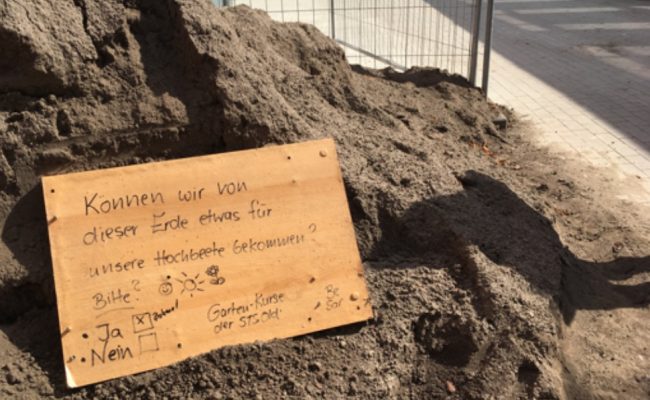 Können wir von
dieser Erde etwas für
unsere Hochbeete bekommen?
Bitte?
Ja
Nein
Garten-Kurse
der STS Old.